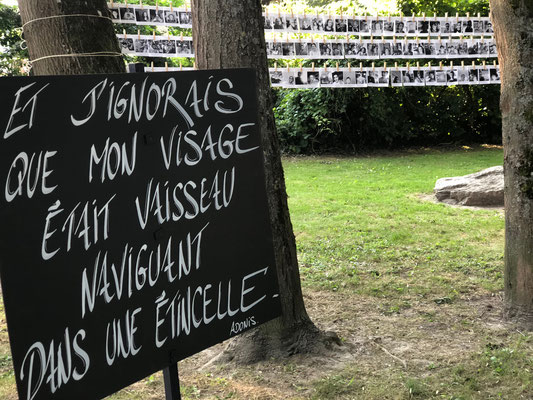 ET J'IGNORAIS
QUE MON VISAGE
ÉTAIT VAISSEAU
NAVIGUANT
DANS UNE ÉTINCELLE.
ADONIS